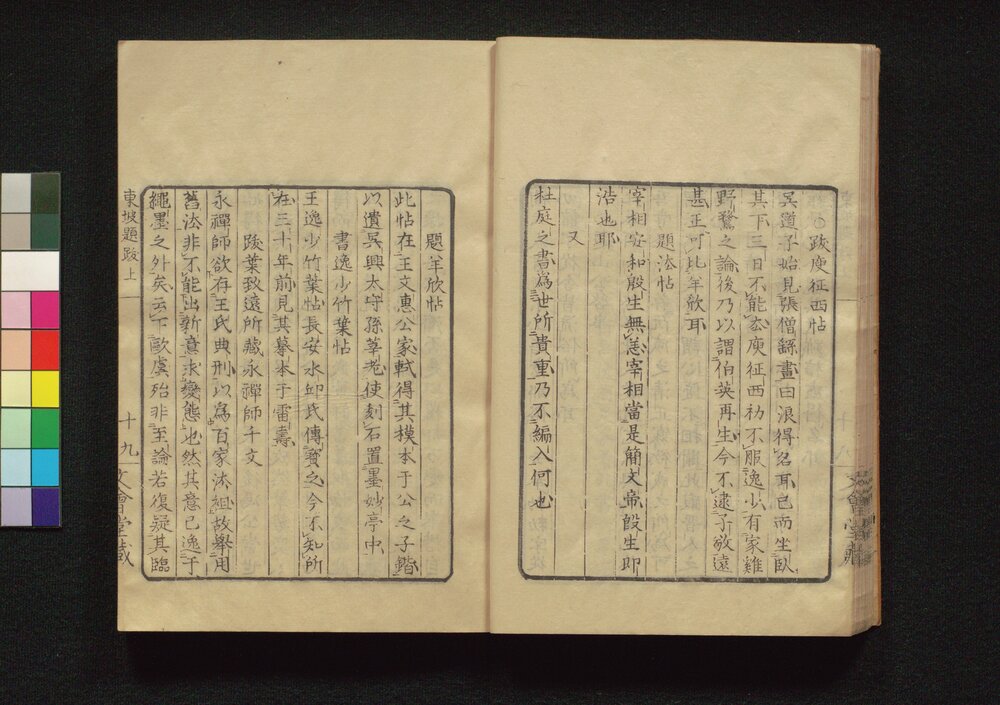 跋庾征西帖
吳道子始見張僧繇畫曰浪得名耳已而坐臥
其下三日不能去庾征西初不服逸少有家雞
野鶩之論後乃以謂伯英再生今不逮子敬遠
甚正可比羊欣耳
題法帖
宰相安和殷生無恙宰相當是簡文帝殷生即
浩也耶
又
杜庭之書為世所貴重乃不編入何也
題羊欣帖
此帖在王文惠公家軾得其摸本于公之子鍇
以遺吳興太守孫莘老使刻石置墨妙亭中
書逸少竹葉帖
王逸少竹葉帖長安水邱氏傳寶之今不知所
在三十年前見其摹本于雷壽
跋葉致遠所藏永禪師千文
永禪師欲存王氏典刑以為百家法祖故舉用
舊法非不能出新意求變態也然其意已逸于
繩墨之外矣云下歐虞殆非至論若復疑其臨
東坡題跋上
十九
文會堂藏